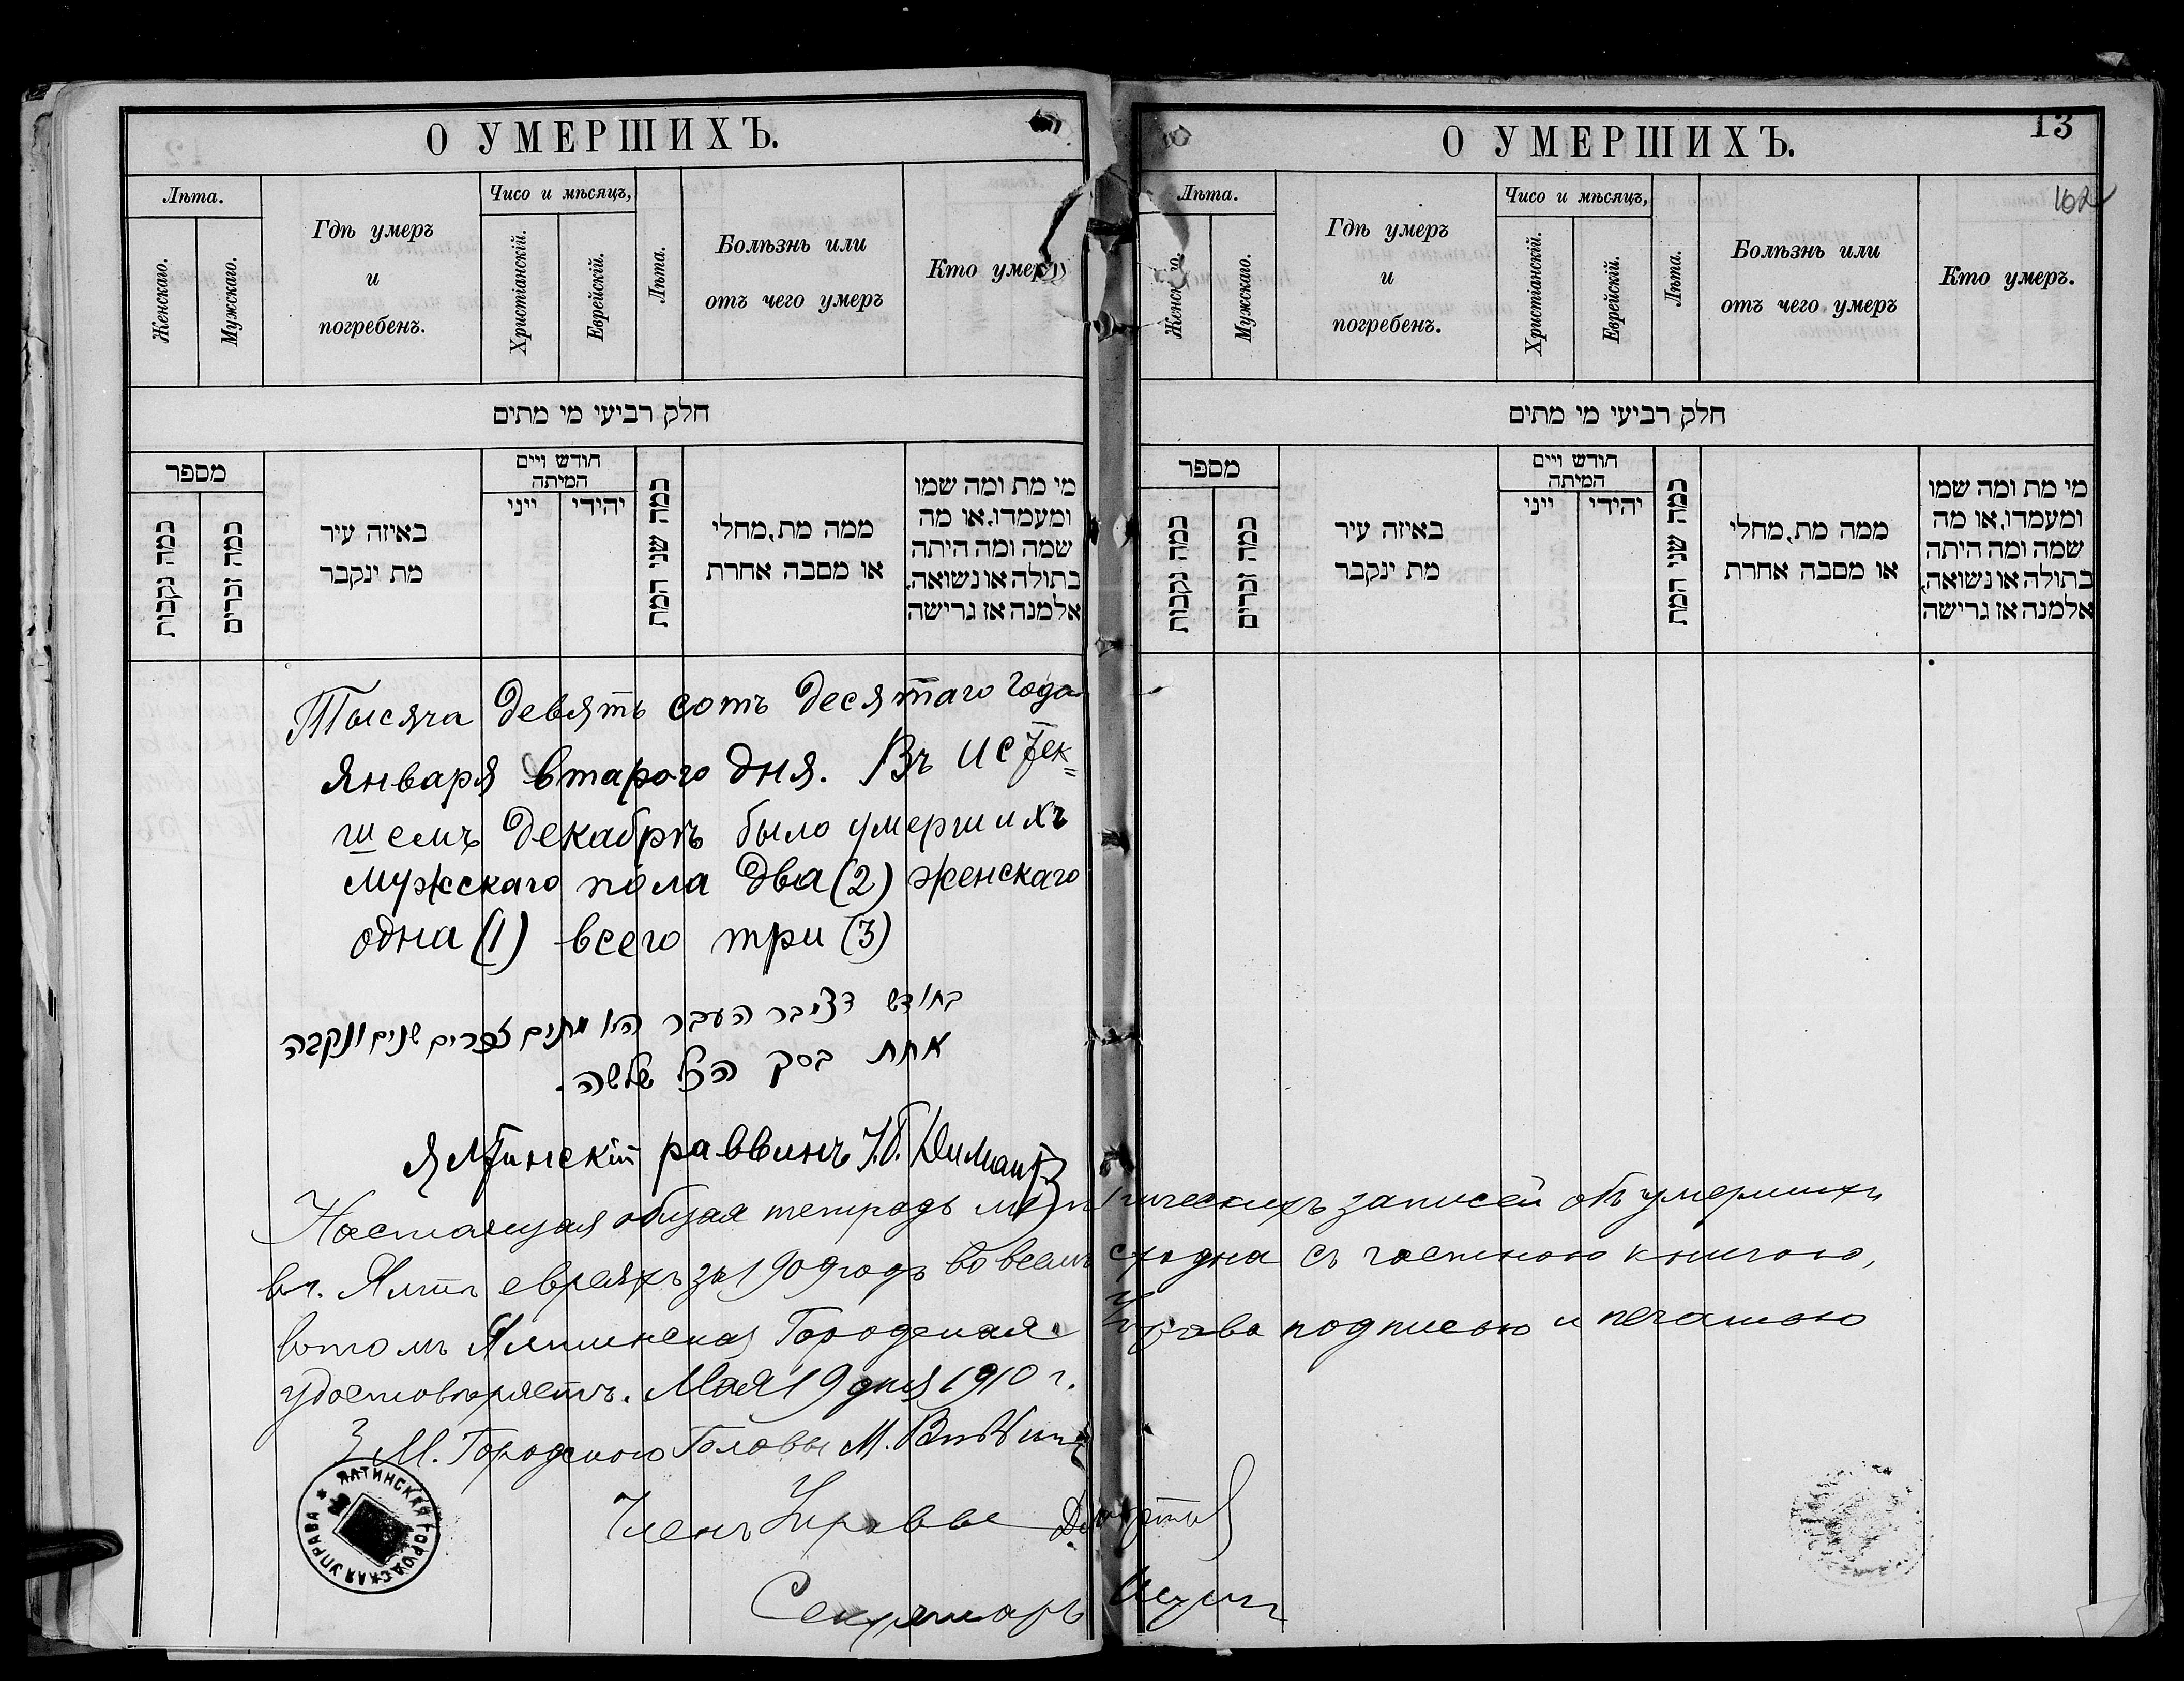 О УМЕРШИХЪ.
Лѣта.
Женскаго.
Мужскаго.
Гдѣ умеръ
и
погребенъ.
Чисо и мѣсяцъ,
Христіанскій.
Еврейскій.
Лѣта.
Болѣзнь или
отъ чего умеръ
Кто умеръ
חלק רביעי מי מתים
מספר
כמה נקבות
כמה זכרים
באיזה עיר
מת ינקבר
חודש ויים
המיתה
ייני
יהידי
כמה שני המת
ממה מת, מחלי
או מסבה אחרת
מי מת ומה שמו
ומעמדו, או מה
שמה ומה היתה
בתולה או נשואה,
אלמנה אז גרישה
Тысяча девять сотъ десятаго года
Января второго дня. Въ истек=
шемъ Декабрѣ было умершихъ
мужскаго пола два (2) женскаго
одна (1) всего три (3)
בחודש דצעבר העבר הלו מתים זכרים שנים ונקבה
אחת בסך הכל שלשה.
Ялтинскій раввинъ
Настоящая общая тетрадь метрическихъ записей объ умершихъ
въ г. Ялтѣ евреяхъ за 1909 годъ во всемъ сходна съ частною книгою,
въ томъ Ялтинская Городская Управа подписью и печатью
удостовѣряетъ. Мая 19 дня 1910 г.
З М. Городского Головы М.
Членъ Управы
Секретарь
ЯЛТИНСКАЯ ГОРОДСКАЯ УПРАВА
О УМЕРШИХЪ.
13
162
Лѣта.
Женскаго.
Мужскаго.
Гдѣ умеръ
и
погребенъ.
Чисо и мѣсяцъ,
Христіанскій.
Еврейскій.
Лѣта.
Болѣзнь или
отъ чего умеръ
Кто умеръ.
חלק רביעי מי מתים
מספר
כמה נקבות
כמה זכרים
באיזה עיר
מת ינקבר
חודש ויים
המיתה
ייני
יהידי
כמה שני המת
ממה מת, מחלי
או מסבה אחרת
מי מת ומה שמו
ומעמדו, או מה
שמה ומה היתה
בתולה או נשואה,
אלמנה אז גרישה